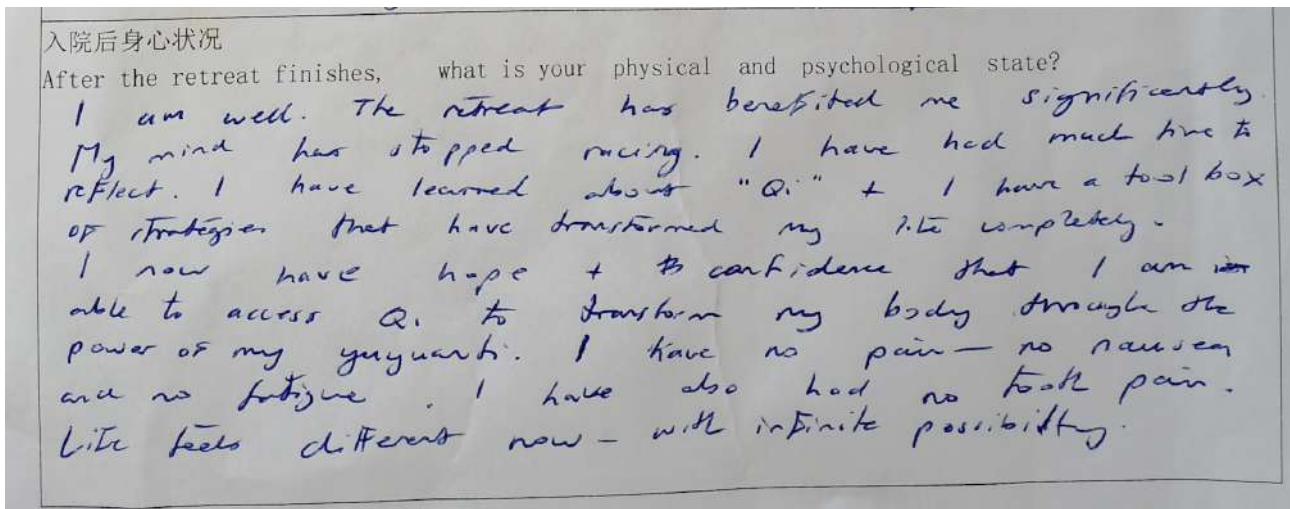 入院后身心状况
After the retreat finishes, what is your physical and psychological state?
I am well. The retreat has benefited me significantly.
My mind has stopped racing. I have had much time to
reflect. I have learned about "Qi" + I have a tool box
of strategies that have transformed my life completely.
I now have hope + confidence that I am
able to access Qi to transform my body through the
power of my yuyuanti. I have no pain - no nausea
and no fatigue. I have also had no tooth pain.
Life feels different now - with infinite possibility.